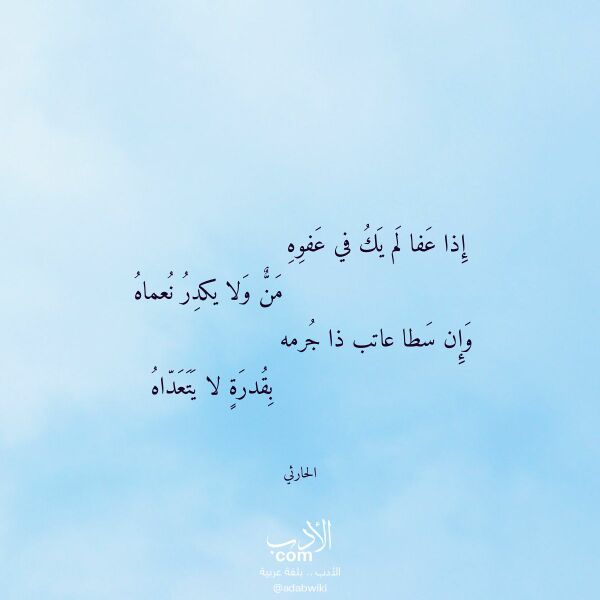 إِذا عَفا لَم يَكُ في عَفوِهِ
مَنٌّ وَلا يكدِرُ نُعماهُ
وَإِن سَطا عاتب ذا جُرمه
بِقُدرَةٍ لا يَتَعَدّاهُ
الحارثي
الأدب
com
الأدب .. بلغة عربية
@adabwiki